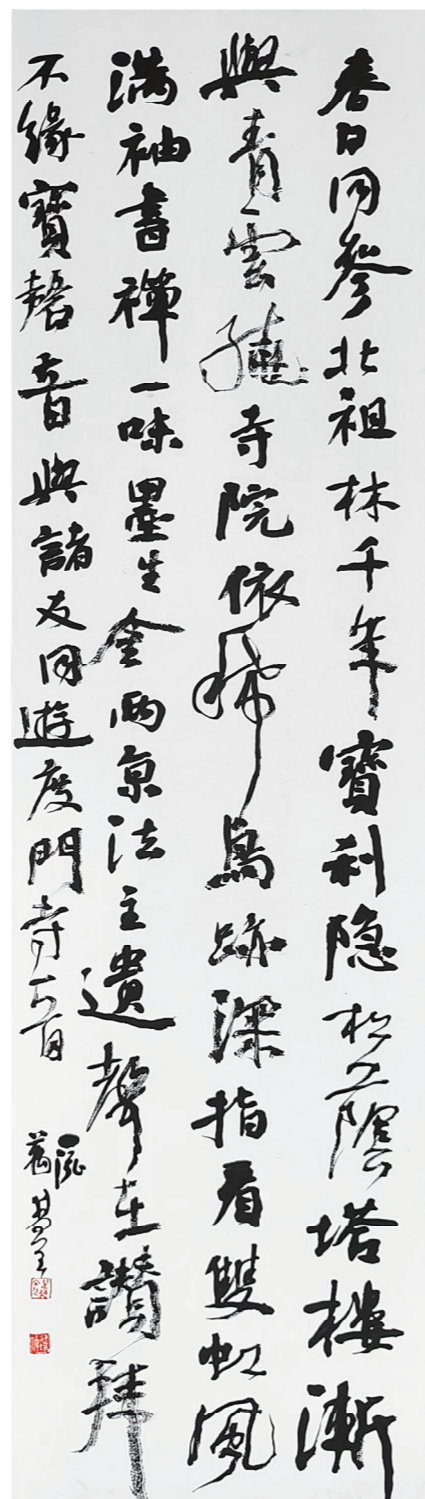 春日同參北祖林千年寶刹隐松陰塔樓漸
與青雲繞寺院依稀鳥跡深指看雙虹風
滿袖書禪一味墨生金兩京法主遺聲在讚拜
不緣寶磬音與諸友同遊度門寺一首